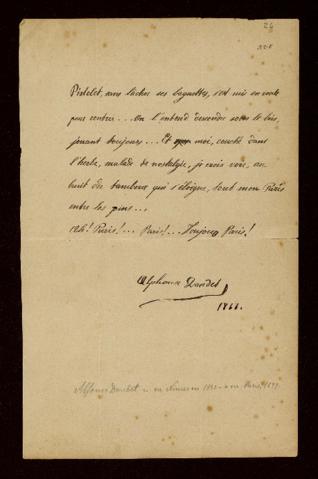 24
Pistolet, sans lâcher ses baguettes, s'est mis en route
pour rentrer... On l'entend descendre sous le bois,
jouant toujours... Et moi, couché dans
l'herbe, malade de nostalgie, je crois voir, au
bruit du tambour qui s'éloigne, tout mon Paris
entre les pins...
Ah! Paris!... Paris!... Toujours Paris!
Alphonse Daudet
1866.
Alfonso Daudet n. en Nimes en 1840 - m. en Paris 1897